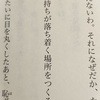 ないわ。それになぜだか、
持ちが落ち着く場所をつくる
たいに目を丸くしたあと、恥